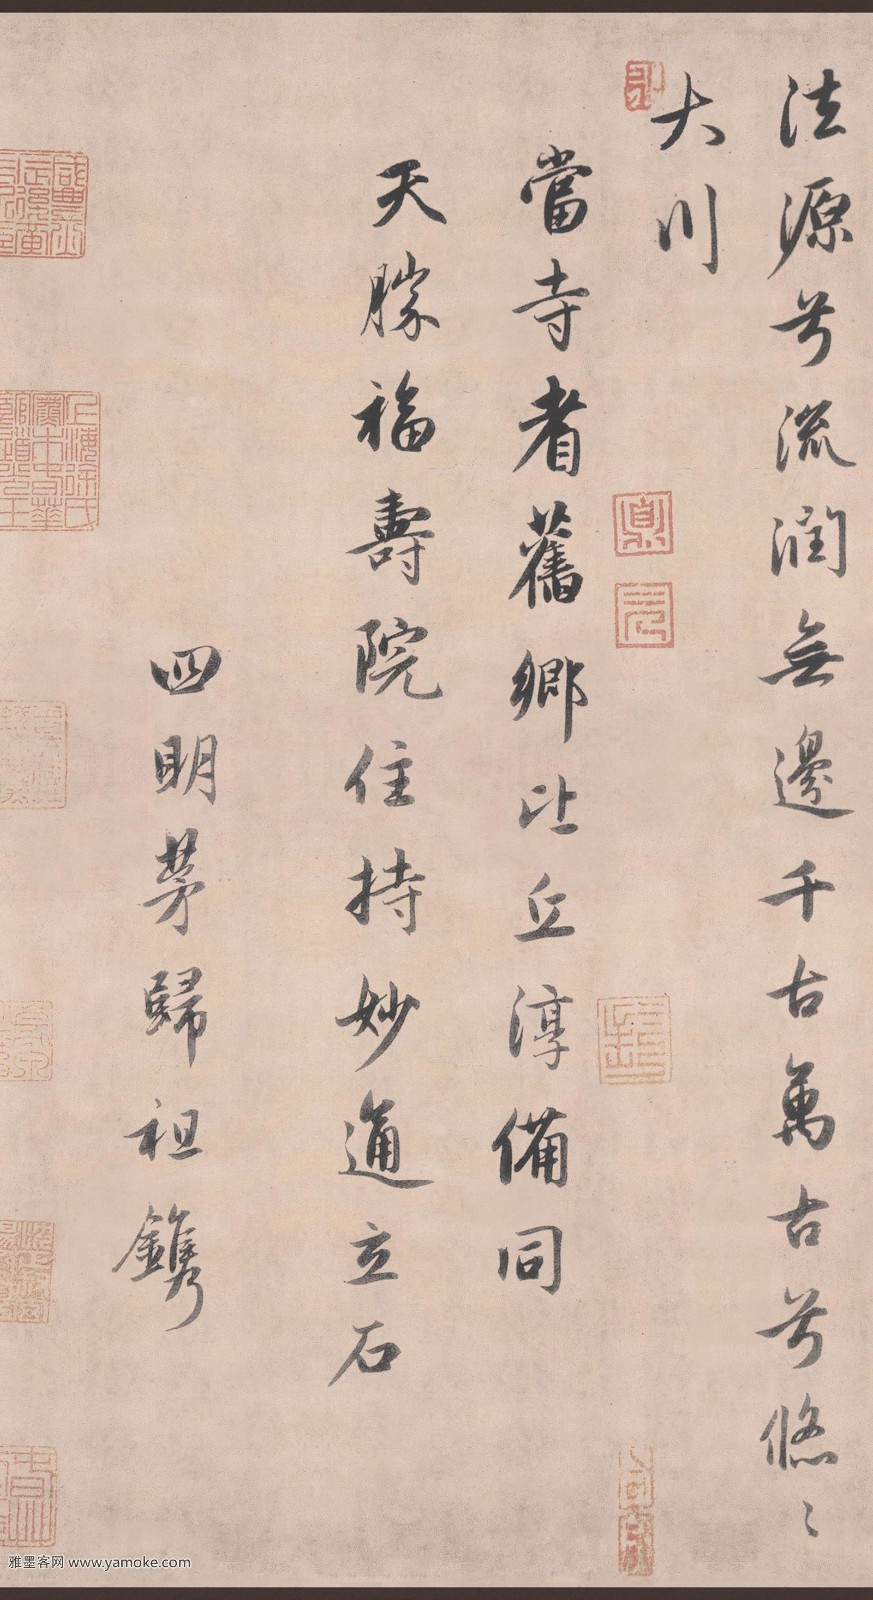 法源兮流润無邊千古萬古兮悠〻
大川
當寺耆舊鄉比丘淳備同
天勝福壽院住持妙通立石
四明茅歸祖鐫
雅墨客网 www.yamoke.com